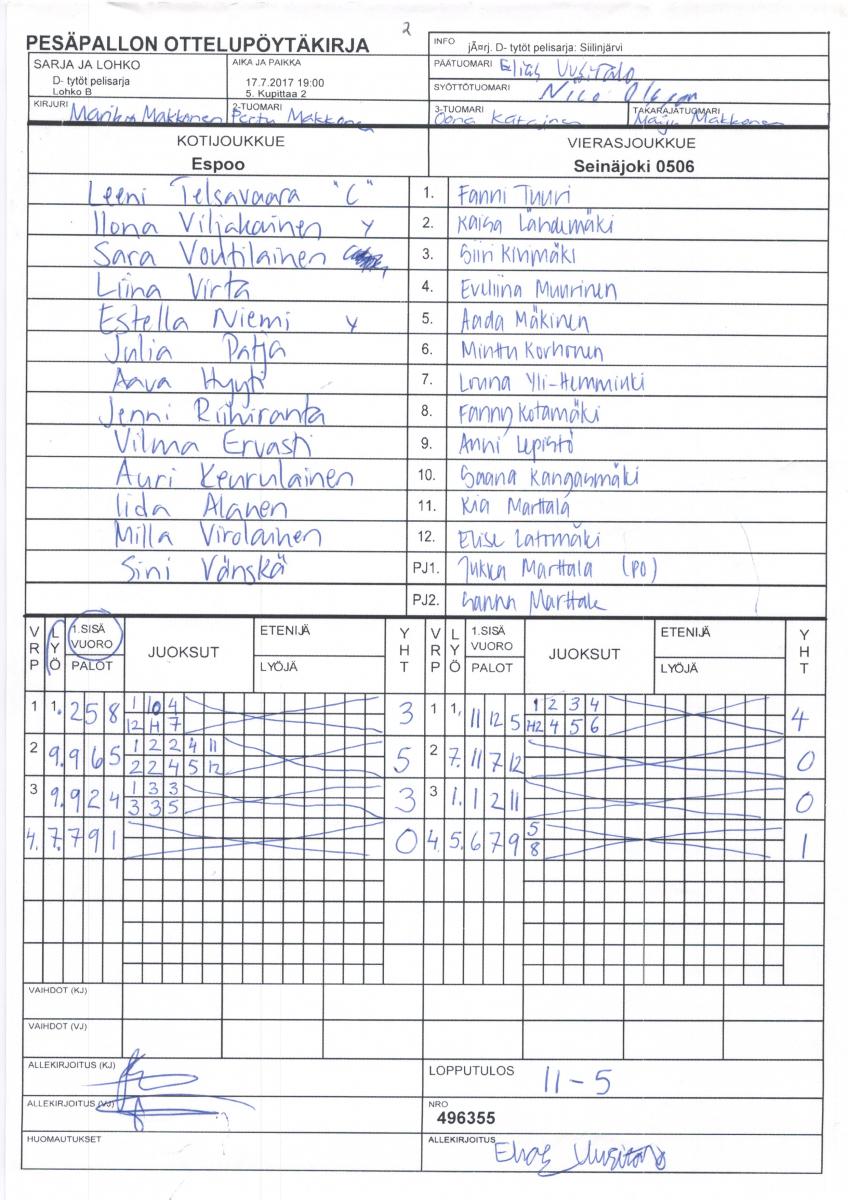 2
PESÄPALLON OTTELUPÖYTÄKIRJA
INFO jÃ¤rj. D- tytöt pelisarja: Siilinjärvi
SARJA JA LOHKO
D- tytöt pelisarja
Lohko B
AIKA JA PAIKKA
17.7.2017 19:00
5. Kupittaa 2
PÄÄTUOMARI Elias Uusitalo
SYÖTTÖTUOMARI Nico
KIRJURI Marika Makkonen
2-TUOMARI Perttu Makkonen
3-TUOMARI Oona
TAKARAJATUOMARI Maiju Makkonen
KOTIJOUKKUE
Espoo
VIERASJOUKKUE
Seinäjoki 0506
Leeni Telsavaara "C" 1. Fanni Tuuri
Ilona Viljakainen Y 2. Kaisa Lähdemäki
Sara Voutilainen 3. Siiri Kivimäki
Liina Virta 4. Eveliina Muurinen
Estella Niemi Y 5. Aada Mäkinen
Julia Patja 6. Minttu Korhonen
Aava Hyyti 7. Louna Yli-Hemminki
Jenni Riihiranta 8. Fanny Kotamäki
Vilma Ervasti 9. Anni Lepistö
Auri Keurulainen 10. Saana Kangasmäki
Iida Alanen 11. Kia Marttala
Milla Virolainen 12. Elise Latvmäki
Sini Vänskä PJ1. Jukka Marttala (PO)
PJ2. Sanna Marttala
VRP LYÖ 1.SISÄ VUORO PALOT JUOKSUT ETENIJÄ LYÖJÄ YHT VRP LYÖ 1.SISÄ VUORO PALOT JUOKSUT ETENIJÄ LYÖJÄ YHT
1 1. 2 5 8 1 10 4 3 1 1. 11 12 5 1 2 3 4 4
12 H 7 H2 4 5 6
2 9. 9 6 5 1 2 2 4 11 5 2 7. 11 7 12 0
2 2 4 5 12
3 9. 9 2 4 1 3 3 3 3 1. 1 2 11 0
3 3 5
4. 7. 7 9 1 0 4. 5. 6 7 9 5 1
8
VAIHDOT (KJ)
VAIHDOT (VJ)
ALLEKIRJOITUS (KJ)
LOPPUTULOS 11-5
ALLEKIRJOITUS (VJ)
NRO
496355
HUOMAUTUKSET
ALLEKIRJOITUS Elias Uusitalo